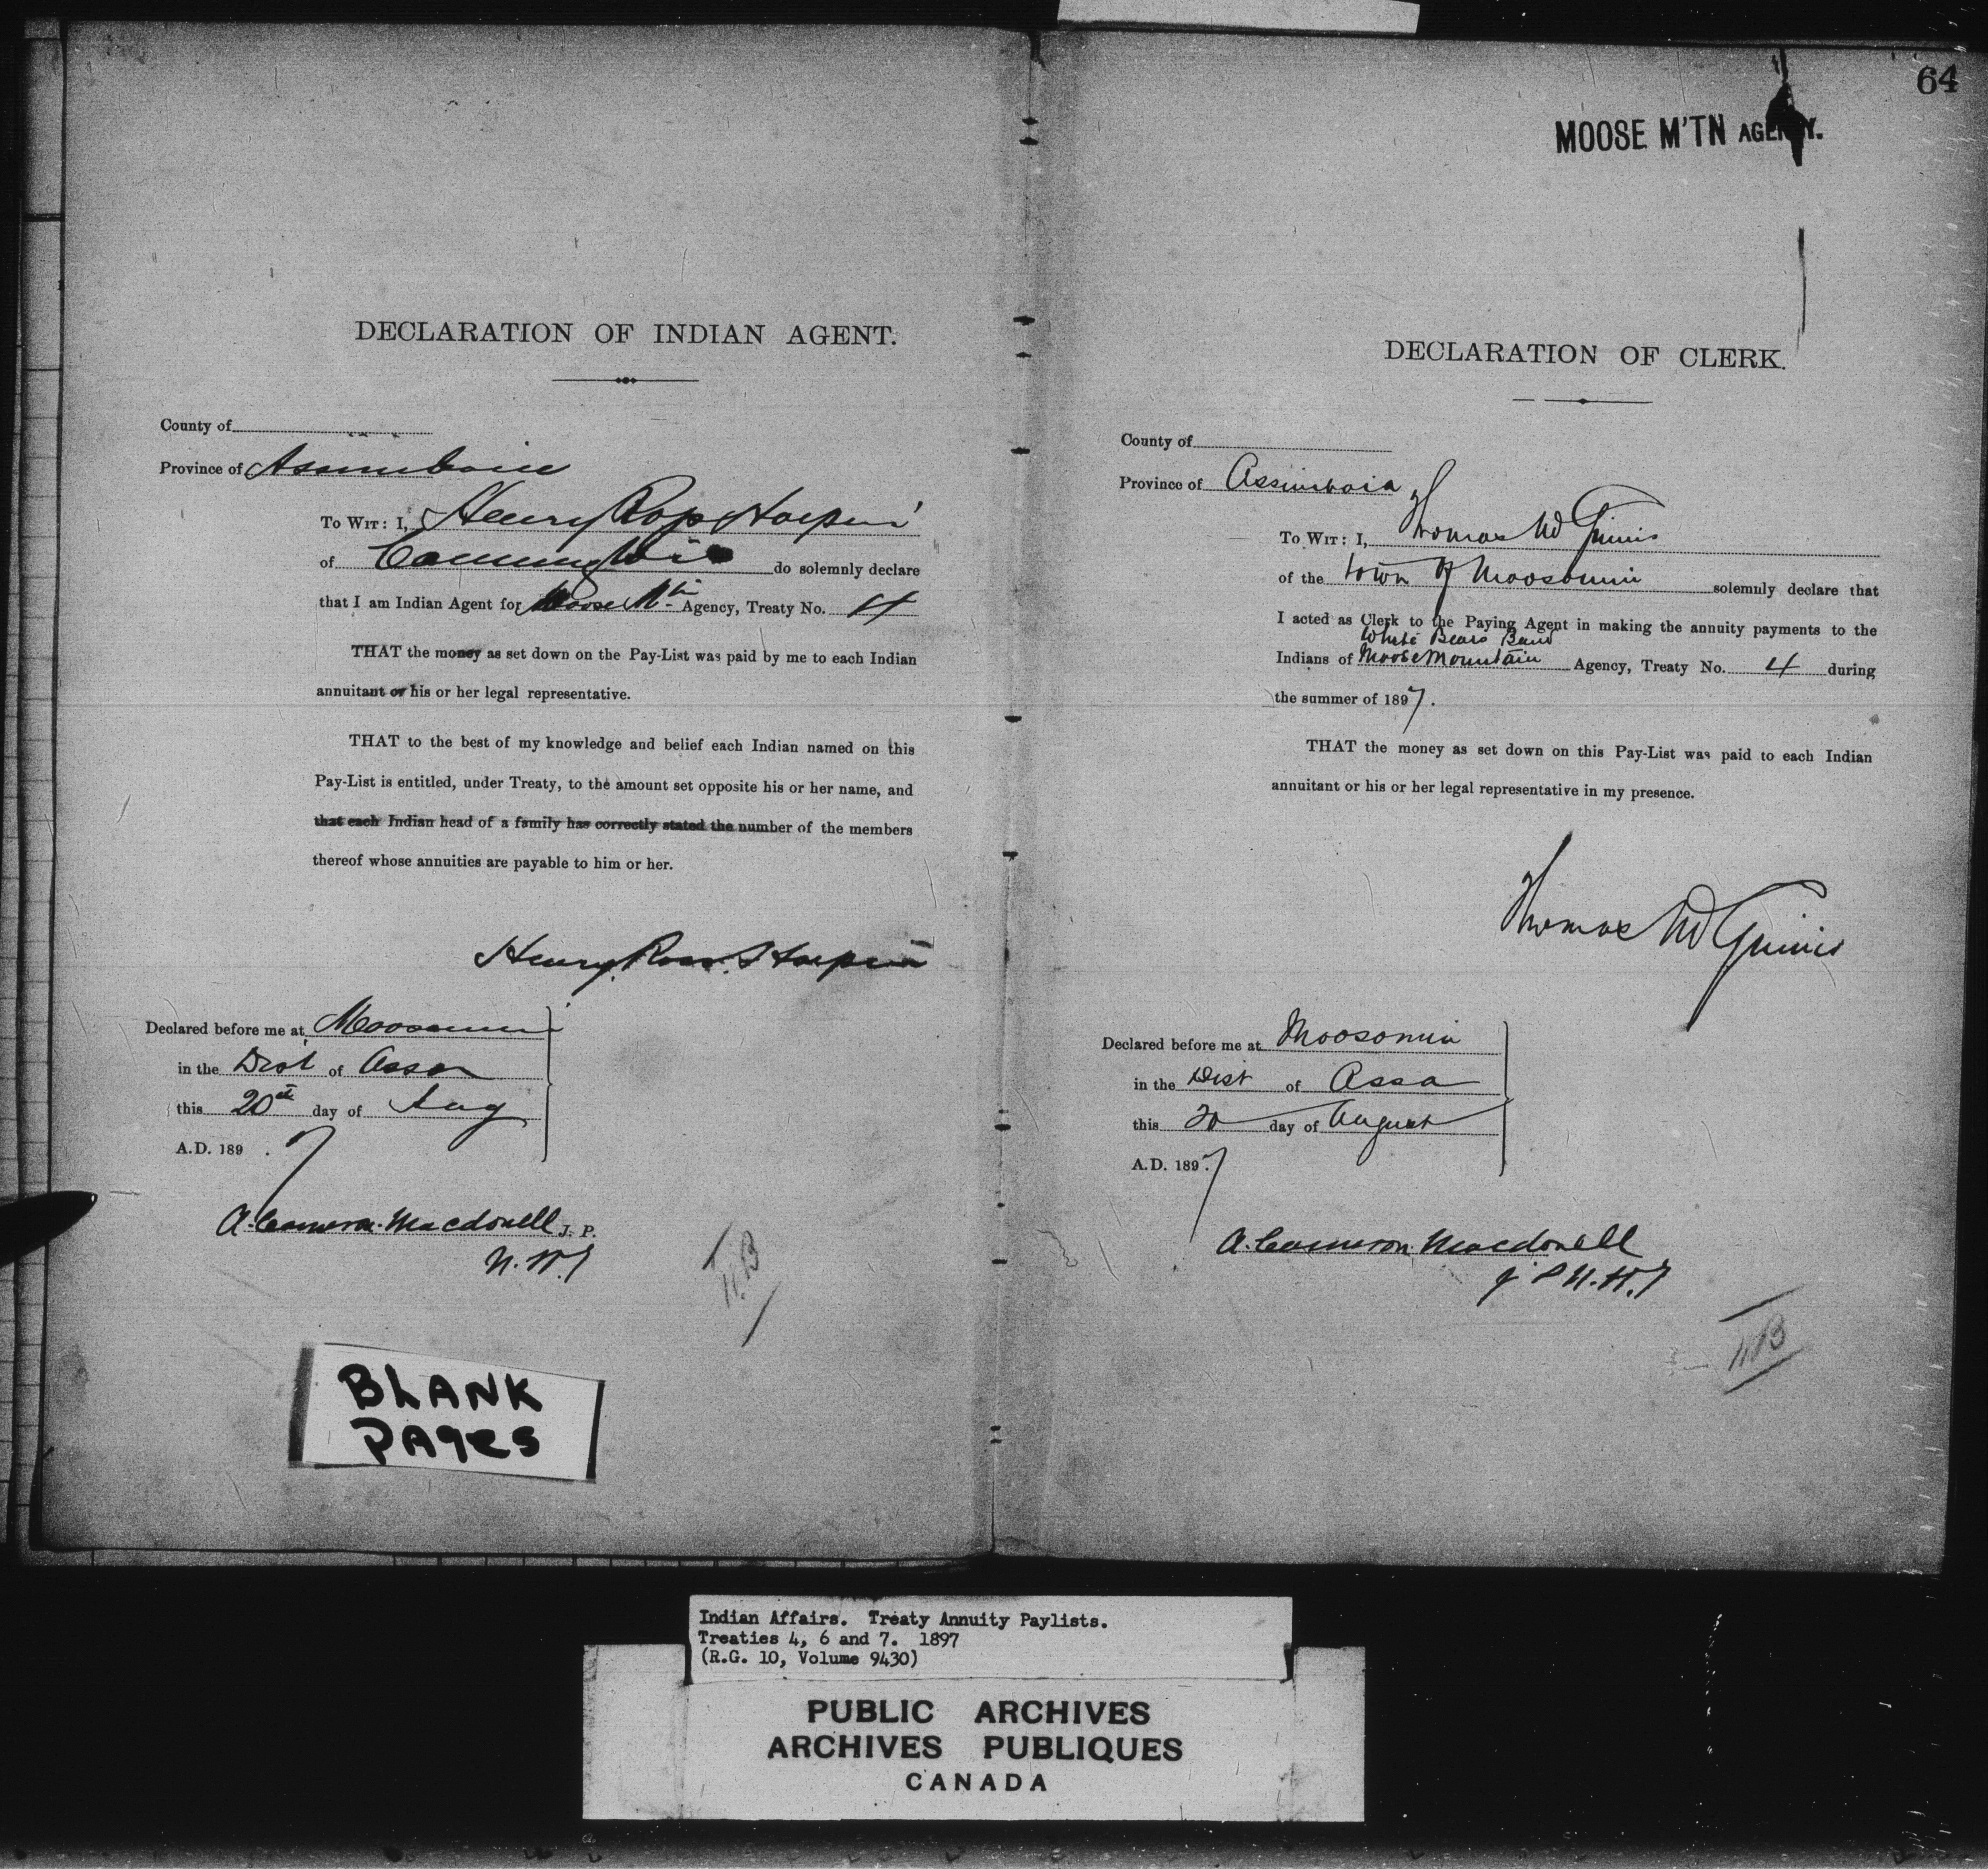 DECLARATION OF INDIAN AGENT.
County of
Province of Assiniboia
To Wit: I, Henry Ross Halpin
of Cannington do solemnly declare
that I am Indian Agent for Moose Mtn Agency, Treaty No. 4
THAT the money as set down on the Pay-List was paid by me to each Indian
annuitant or his or her legal representative.
THAT to the best of my knowledge and belief each Indian named on this
Pay-List is entitled, under Treaty, to the amount set opposite his or her name, and
that each Indian head of a family has correctly stated the number of the members
thereof whose annuities are payable to him or her.
Henry Ross Halpin
Declared before me at Moosomin
in the Dist of Assa
this 20th day of Aug
A.D. 189 . 7
A. Cameron Macdonell J. P.
N.W.T
BLANK
PAGES
64
MOOSE M'TN AGENCY.
DECLARATION OF CLERK.
County of
Province of Assiniboia
To Wit: I, Thomas McGinnis
of the town of Moosomin solemnly declare that
I acted as Clerk to the Paying Agent in making the annuity payments to the
White Bears Band
Indians of Moose Mountain Agency, Treaty No. 4 during
the summer of 1897.
THAT the money as set down on this Pay-List was paid to each Indian
annuitant or his or her legal representative in my presence.
Thomas McGinnis
Declared before me at Moosomin
in the Dist of Assa
this 20 day of August
A.D. 1897.
A. Cameron Macdonell
J P N.W.T
Indian Affairs. Treaty Annuity Paylists.
Treaties 4, 6 and 7. 1897
(R.G. 10, Volume 9430)
PUBLIC ARCHIVES
ARCHIVES PUBLIQUES
CANADA